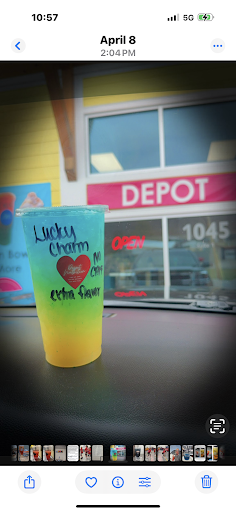 10:57
5G
April 8
2:04 PM
DEPOT
Lucky
Charm
extra flavor
OPEN
1045